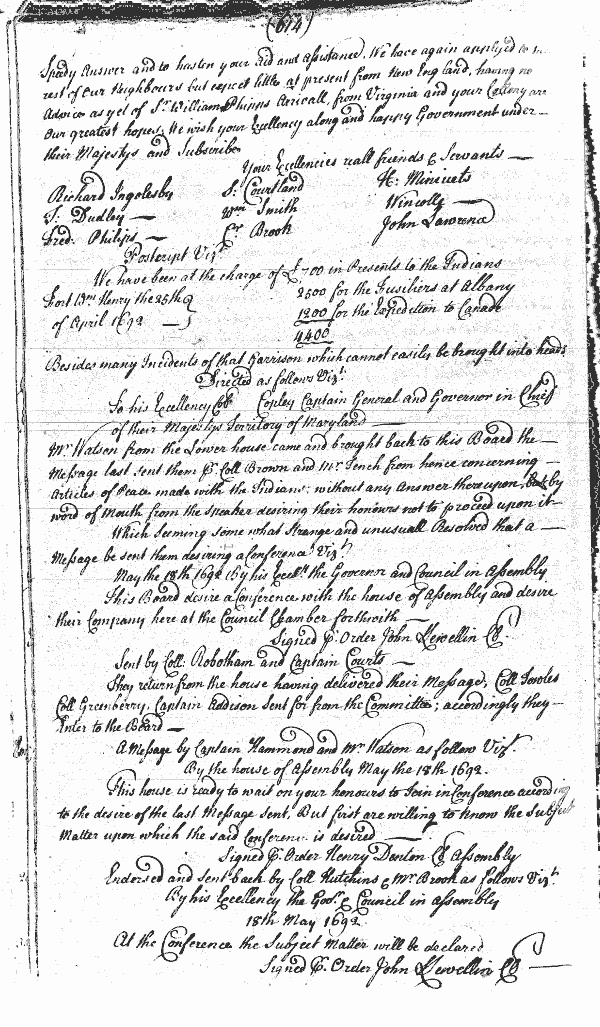 (614)
Speedy Answer and to hasten your Aid and Assistance, We have again applyed to
rest of our Neighbours but expect little at present from New England, having no
Advice as yet of Sr. William Phipps Arivall, from Virginia and your Collony are
Our greatest hopes. We wish your Excellency along and happy Government under
their Majestys and Subscribe
Your Excellencies reall friends & Servants
Richard Ingolesby S: Courtland N: Miniviets
J: Dudley Wm Smith Wincoll
Fred: Philips Cr Brook John Lawrence
Postcript Vizt.
We have been at the charge of £700 in Presents to the Indians
Fort Wm Henry the 25th 2500 for the Fusiliers at Albany
of April 1692 1200 for the Expedition to Canada
4400
Besides many Incidents of that Garrison which cannot easily be brought into heads
Directed as follows Vizt.
To his Excellency Coll Copley Captain General and Governor in Chief
of their Majestys Territory of Maryland
Mr. Watson from the Lower house came and brought back to this Board the
Message last sent them P. Coll Brown and Mr. Tench from hence concerning
Articles of Peace made with the Indians: without any Answer thereupon, but by
word of Mouth from the Speaker desiring their honours not to proceed upon it
Which seeming some what Strange and unusuall Resolved that a
Message be sent them desiring a Conference Vizt.
May the 18th 1692 By his Excelly. the Governor and Council in Assembly
This Board desire a Conference with the house of Assembly and desire
their Company here at the Council Chamber forthwith
Signed P. Order John Llewellin Cl.
Sent by Coll: Robotham and Captain Courts
They return from the house having delivered their Message, Coll Jowles
Coll Greenberry, Captain Addison sent for from the Committee; accordingly they
Enter to the Board
A Message by Captain Hammond and Mr Watson as follow Vizt.
By the house of Assembly May the 18th 1692.
This house is ready to wait on your honours to Join in Conference according
to the desire of the last Message sent, But first are willing to know the Subject
Matter upon which the said Conference is desired
Signed P. Order Henry Denton Cl Assembly
Endorsed and sent back by Coll Hutchins & Mr Brook as follows Vizt.
By his Excellency the Govr. & Council in Assembly
18th May 1692
At the Conference the Subject Matter will be declared
Signed P. Order John Llewellin Cl